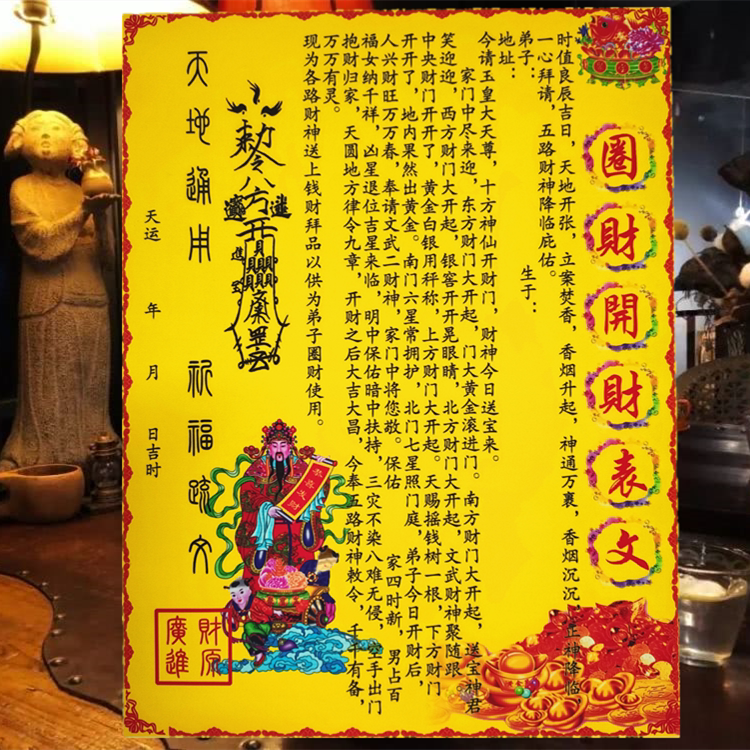 圈財開財表文
时值良辰吉日，天地开张，立案焚香，香烟升起，神通万裏，香烟沉沉，正神降临，
一心拜请，五路财神降临庇佑。
弟子： 生于：
地址：
今请玉皇大天尊，十方神仙开财门，财神今日送宝来。
家门中尽来迎，东方财门大开起，门大黄金滚进门。南方财门大开起，送宝神君
笑迎迎，西方财门大开起，银窖开开晃眼睛，北方财门大开起，文武财神聚随跟
中央财门开开了，黄金白银用秤称，上方财门大开起。天赐摇钱树一根，下方财门
开开了，地内果然出黄金。南门六星常拥护，北门七星照门庭，弟子今日开财后，
人兴财旺万万春，奉请文武二财神，家门中将您敬。保佑 家四时新，男占百
福女纳千祥，凶星退位吉星来临，明中保佑暗中扶持，三灾不染八难无侵，空手出门
抱财归家，天圆地方律令九章，开财之后大吉大昌，今奉五路财神敕令，千千有备，
万万有灵。
现为各路财神送上钱财拜品以供为弟子圈财使用。
敕令八方开
進
宝
恭喜发财
天地通用 祈福疏文
天运 年 月 日吉时
財原廣進